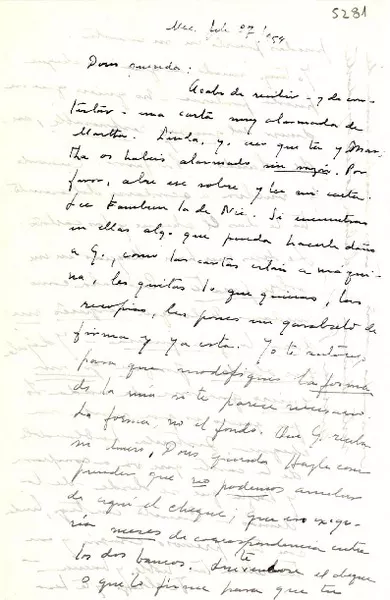 5281
1954
Doris querida:
Acabo de recibir - y de con-
testar - una carta muy alarmada de
Martha. Linda, yo creo que tú y Mar-
tha os habéis alarmado sin razón. Por
favor, abre ese sobre y lee mi carta.
Lee también la de Nié. Si encuentras
en ellas algo que pueda hacerle daño
a G., como las cartas están a máqui-
na, les quitas lo que quieras, las
recopias, les pones un garabato de
firma y ya está. Yo te autorizo
para que modifiques la forma
de la mía si te parece necesario
La forma, no el fondo. Que G. reciba
mi dinero, Doris querida. Hazle com
prender que no podemos
de aquí el cheque; que eso exigi-
ría meses de correspondencia entre
los dos bancos. el cheque
o que lo firme para que tú